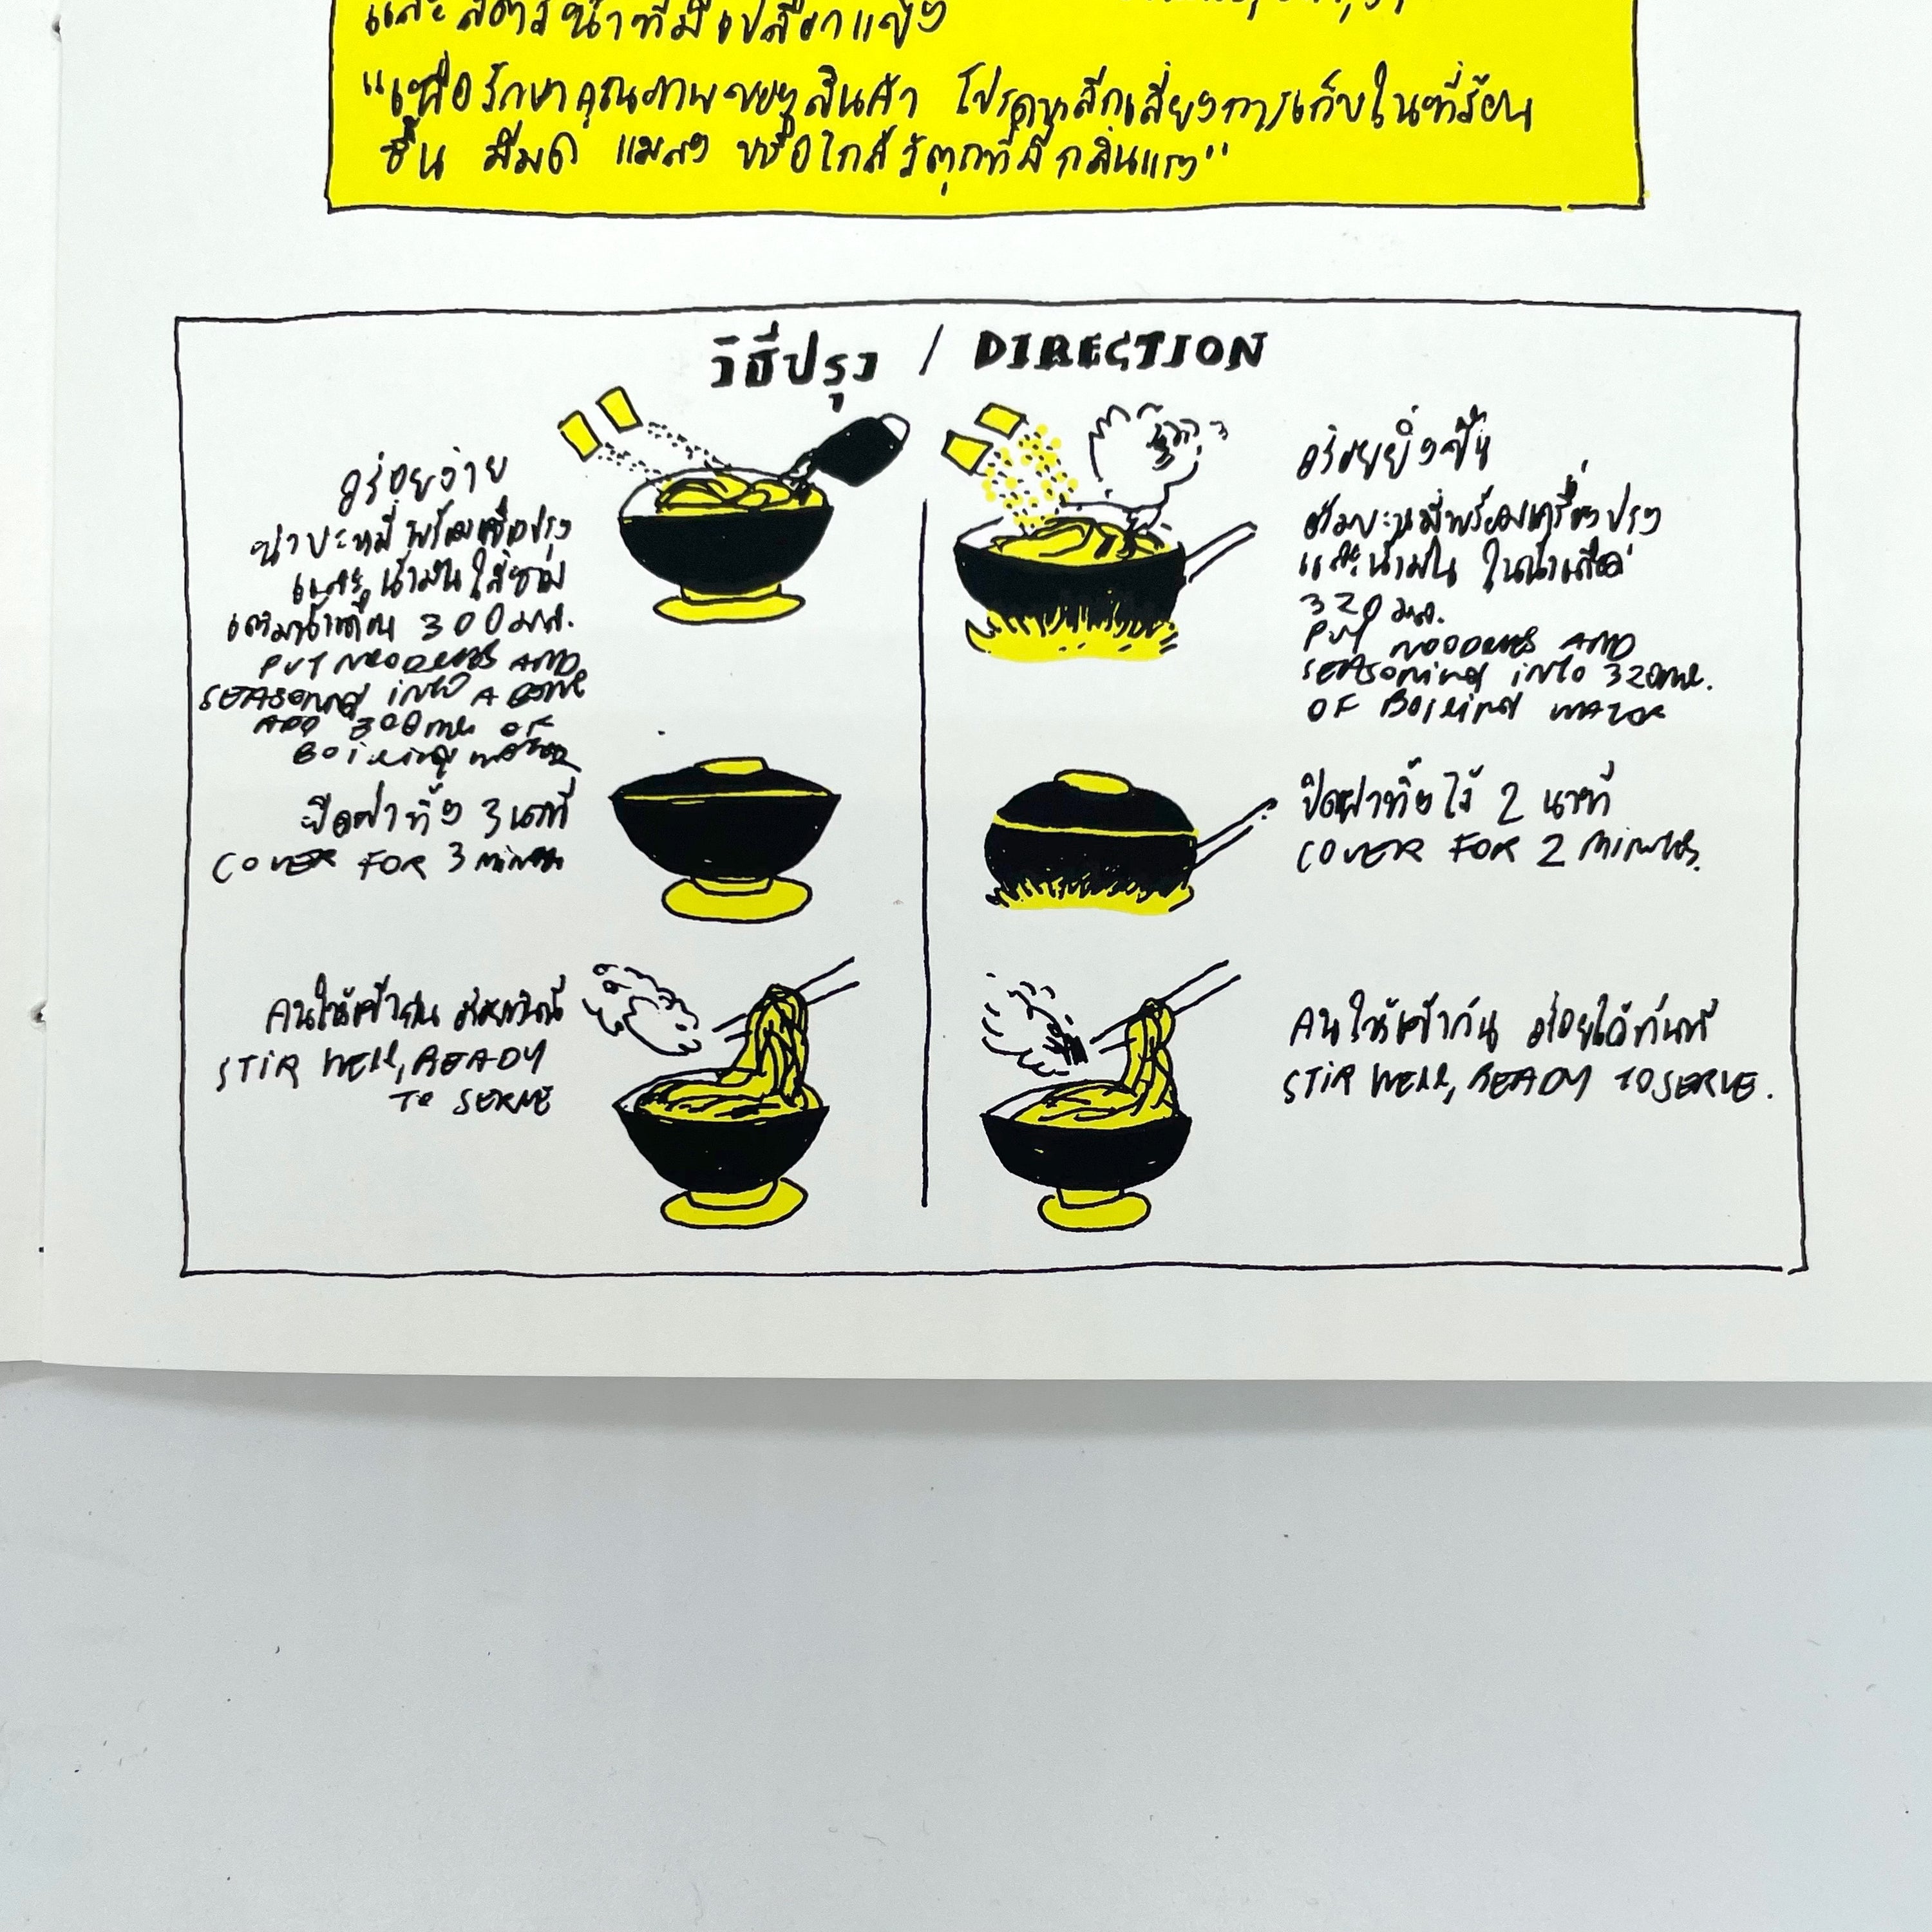 และสัตว์น้ำที่มีเปลือกแข็ง
"เพื่อรักษาคุณภาพของสินค้า โปรดหลีกเลี่ยงการเก็บในที่ร้อน
ชื้น มีมด แมลง หรือใกล้วัตถุที่มีกลิ่นแรง"
วิธีปรุง / DIRECTION
อร่อยง่าย
นำบะหมี่พร้อมเครื่องปรุง
และน้ำมันใส่ชาม
เติมน้ำเดือด 300 มล.
PUT NOODLES AND
SEASONING INTO A BOWL
ADD 300ML OF
BOILING WATER
ปิดฝาทิ้ง 3 นาที
COVER FOR 3 MINUTES
คนให้เข้ากัน
STIR WELL, READY
TO SERVE
อร่อยยิ่งขึ้น
ต้มบะหมี่พร้อมเครื่องปรุง
และน้ำมัน ในน้ำเดือด
320 มล.
PUT NOODLES AND
SEASONING INTO 320ML.
OF BOILING WATER
ปิดฝาทิ้งไว้ 2 นาที
COVER FOR 2 MINUTES.
คนให้เข้ากัน อร่อยได้ทันที
STIR WELL, READY TO SERVE.